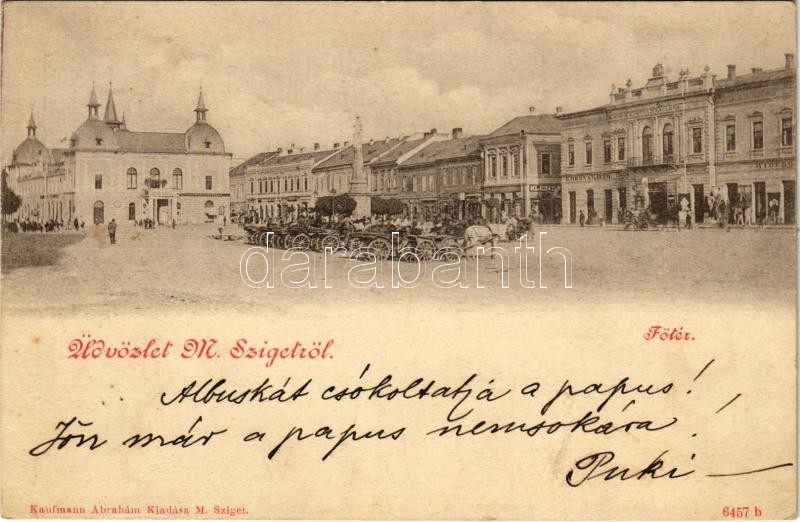 KLEIN
darabanth
Üdvözlet M. Szigetről.
Főtér.
Albuskát csókoltatja a papus!
Jön már a papus nemsokára!
Puki
Kaufmann Abrahám Kiadása M. Sziget.
6457 b